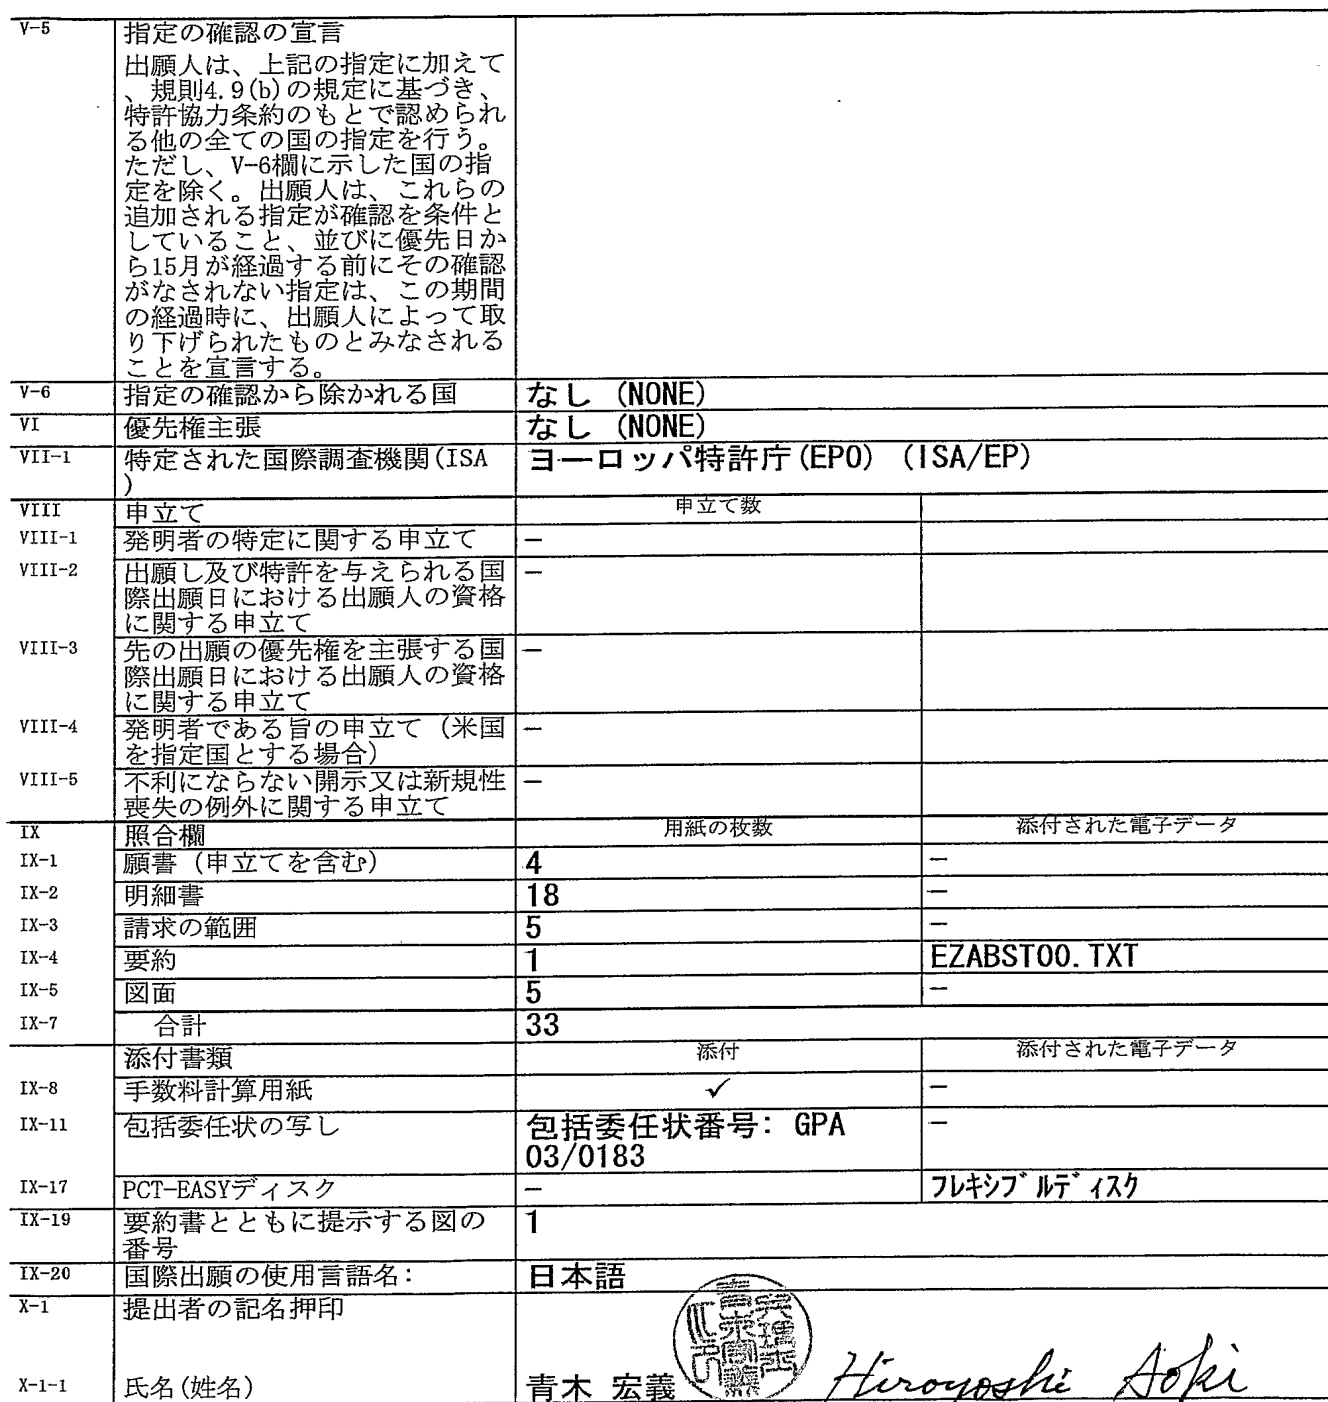 V-5 指定の確認の宣言
出願人は、上記の指定に加えて
、規則4.9(b)の規定に基づき、
特許協力条約のもとで認められ
る他の全ての国の指定を行う。
ただし、V-6欄に示した国の指
定を除く。出願人は、これらの
追加される指定が確認を条件と
していること、並びに優先日か
ら15月が経過する前にその確認
がなされない指定は、この期間
の経過時に、出願人によって取
り下げられたものとみなされる
ことを宣言する。
V-6 指定の確認から除かれる国 なし (NONE)
VI 優先権主張 なし (NONE)
VII-1 特定された国際調査機関(ISA ヨーロッパ特許庁(EPO) (ISA/EP)
)
VIII 申立て 申立て数
VIII-1 発明者の特定に関する申立て –
VIII-2 出願し及び特許を与えられる国 –
際出願日における出願人の資格
に関する申立て
VIII-3 先の出願の優先権を主張する国 –
際出願日における出願人の資格
に関する申立て
VIII-4 発明者である旨の申立て（米国 –
を指定国とする場合）
VIII-5 不利にならない開示又は新規性 –
喪失の例外に関する申立て
IX 照合欄 用紙の枚数 添付された電子データ
IX-1 願書（申立てを含む） 4 –
IX-2 明細書 18 –
IX-3 請求の範囲 5 –
IX-4 要約 1 EZABST00.TXT
IX-5 図面 5 –
IX-7 合計 33
添付書類 添付 添付された電子データ
IX-8 手数料計算用紙 ✓ –
IX-11 包括委任状の写し 包括委任状番号: GPA –
03/0183
IX-17 PCT-EASYディスク – フレキシブルディスク
IX-19 要約書とともに提示する図の 1
番号
IX-20 国際出願の使用言語名: 日本語
X-1 提出者の記名押印
X-1-1 氏名(姓名) 青木 宏義 Hiroyoshi Aoki